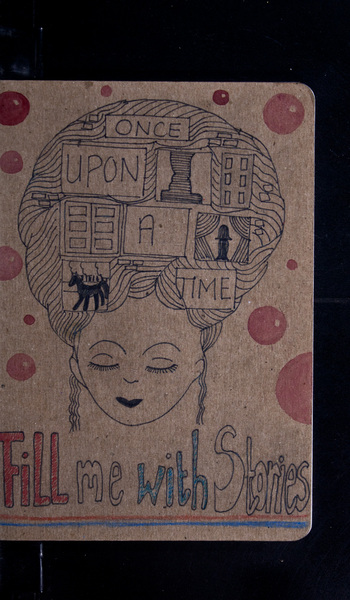 ONCE
UPON
A
TIME
Fill me with Stories